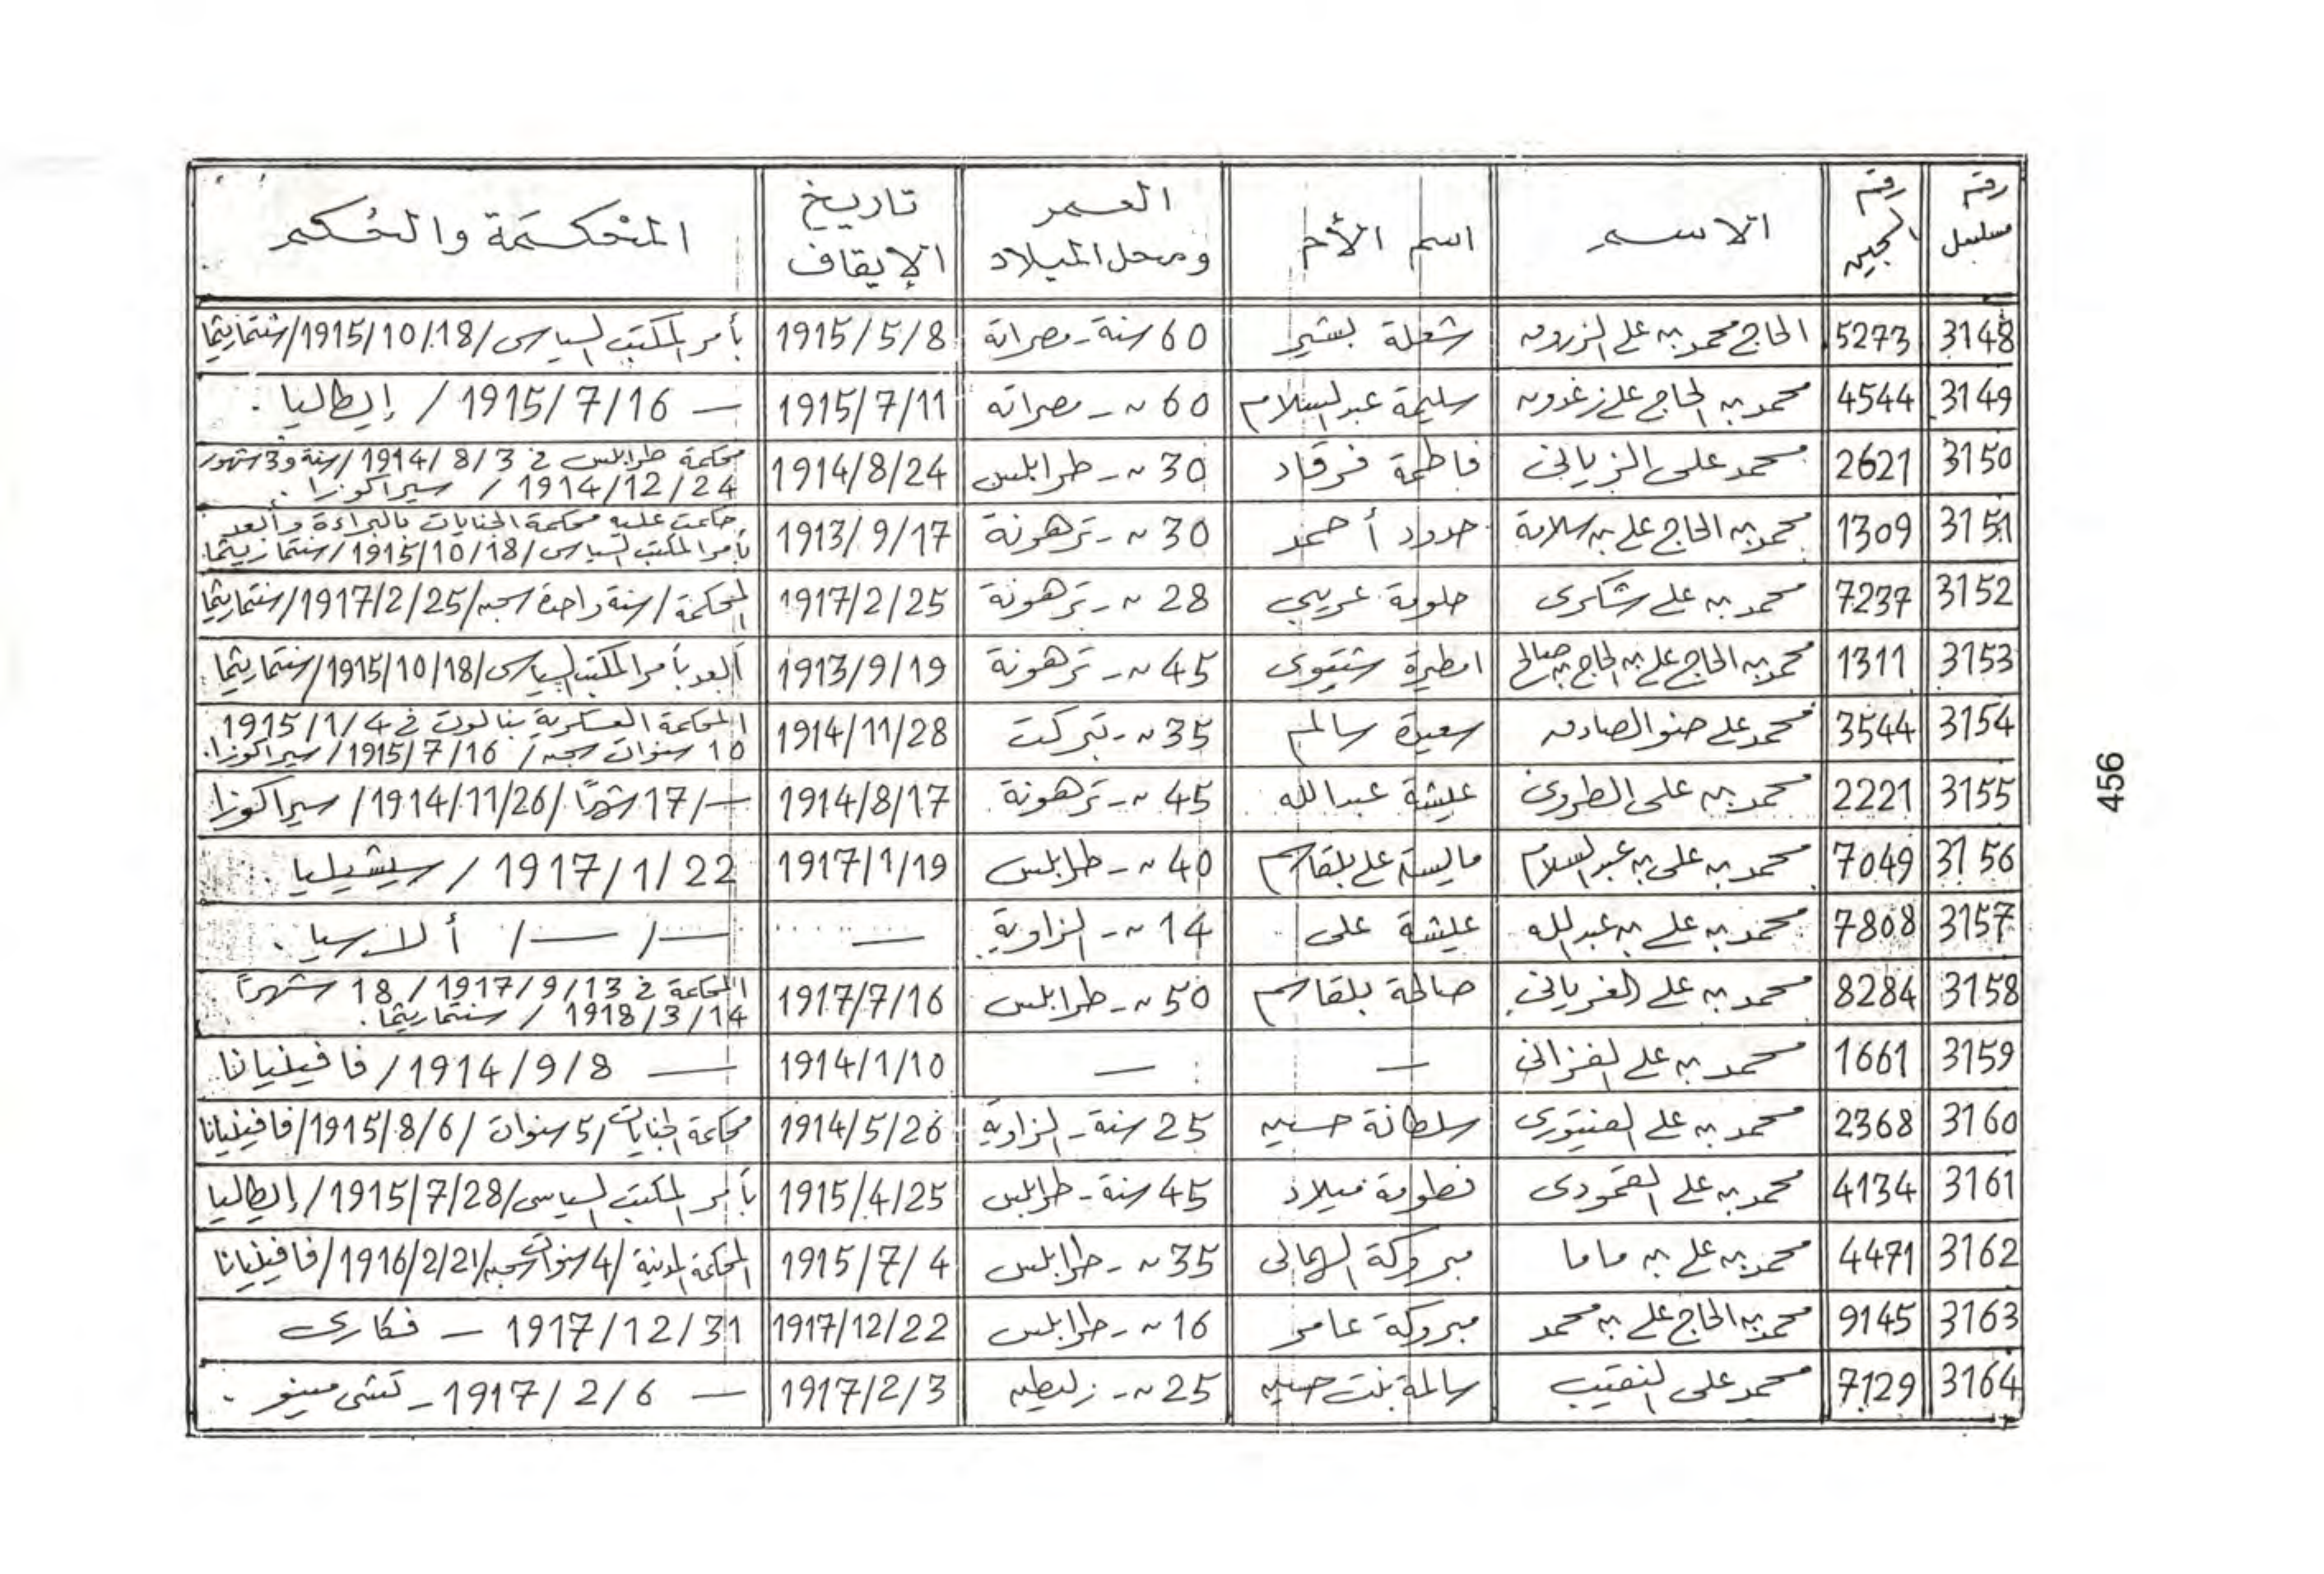 رقم مسلسل | رقم السجين | الاسم | اسم الأم | العمر ومحل الميلاد | تاريخ الإيقاف | المحكمة والحكم
3148 | 5273 | الحاج محمد بن على الزروق | شعلة بشير | 60 سنة - مصراتة | 1915/5/8 | بأمر المكتب السياسى / 1915/10/18 / سنتماريثما
3149 | 4544 | محمد بن الحاج على زغدون | سليمة عبد السلام | 60 ~ - مصراته | 1915/7/11 | — 1915/7/16 / إيطاليا.
3150 | 2621 | محمد على الزيانى | فاطمة فرقاد | 30 ~ - طرابلس | 1914/8/24 | محكمة طرابلس فى 1914/8/3 / سنة و3 شهور
1914/12/24 / سيراكوزا.
3151 | 1309 | محمد بن الحاج على بن سلامة | حدود أحمد | 30 ~ - ترهونة | 1913/9/17 | حكمت عليه محكمة الجنايات بالبراءة وأبعد
بأمر المكتب السياسى / 1915/10/18 /
3152 | 7237 | محمد بن على شكرى | حلومة عريبى | 28 ~ - ترهونة | 1917/2/25 | المحكمة / سنة واحدة سجن / 1917/2/25 / سنتماريثما
3153 | 1311 | محمد بن الحاج على بن الحاج بن صالح | امطيرة شتيوى | 45 ~ - ترهونة | 1913/9/19 | أبعد بأمر المكتب السياسى / 1915/10/18 / سنتماريثما
3154 | 3544 | محمد على الصادق | سعيدة سالم | 35 ~ - تبركت | 1914/11/28 | المحكمة العسكرية بنالوت فى 1915/1/4
10 سنوات سجن / 1915/7/16 / سيراكوزا.
3155 | 2221 | محمد بن على | عيشة عبدالله | 45 ~ - ترهونة | 1914/8/17 | — / 17 شهرًا / 1914/11/26 / سيراكوزا
3156 | 7049 | محمد بن على بن عبد السلام | على بلقاسم | 40 ~ - طرابلس | 1917/1/19 | 1917/1/22 / سيشيليا.
3157 | 7808 | محمد بن على بن عبد الله | عيشة على | 14 ~ - الزاوية | — | — / — / ألارسيا.
3158 | 8284 | محمد بن على الغريانى | صالحة بلقاسم | 50 ~ - طرابلس | 1917/7/16 | المحكمة فى 1917/9/13 / 18 شهرًا
1918/3/14 / سنتماريثما.
3159 | 1661 | محمد بن على الفزانى | — | — | 1914/1/10 | — 1914/9/8 / فافينيانا
3160 | 2368 | محمد بن على الفيتورى | سلطانة حسين | 25 سنة - الزاوية | 1914/5/26 | محكمة الجنايات / 5 سنوات / 1915/8/6 / فافينيانا
3161 | 4134 | محمد بن على القمودى | فطومة ميلاد | 45 سنة - طرابلس | 1915/4/25 | بأمر المكتب السياسى / 1915/7/28 / إيطاليا
3162 | 4471 | محمد بن على بن ماما | مبروكة | 35 ~ - طرابلس | 1915/7/4 | المحكمة المدنية / 4 سنوات سجن / 1916/2/21 / فافينيانا
3163 | 9145 | محمد بن الحاج على بن محمد | مبروكة عامر | 16 ~ - طرابلس | 1917/12/22 | 1917/12/31 — فكارى
3164 | 7129 | محمد على النقيب | سالمة بنت حسين | 25 ~ - زليطن | 1917/2/3 | — 1917/2/6 -
456